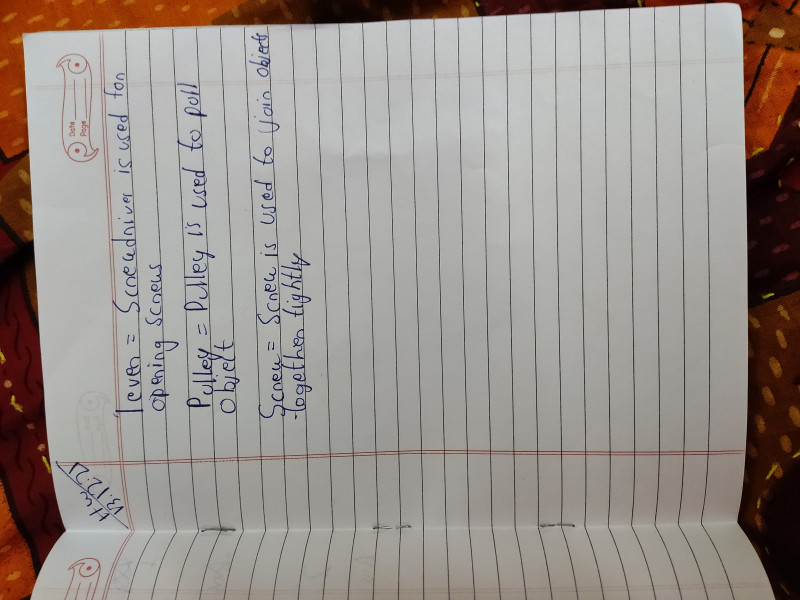 Date
Page
H.W
13.12.21
Lever = Screwdriver is used for
opening screws
Pulley = Pulley is used to pull
object
Screw = Screw is used to join objects
together tightly